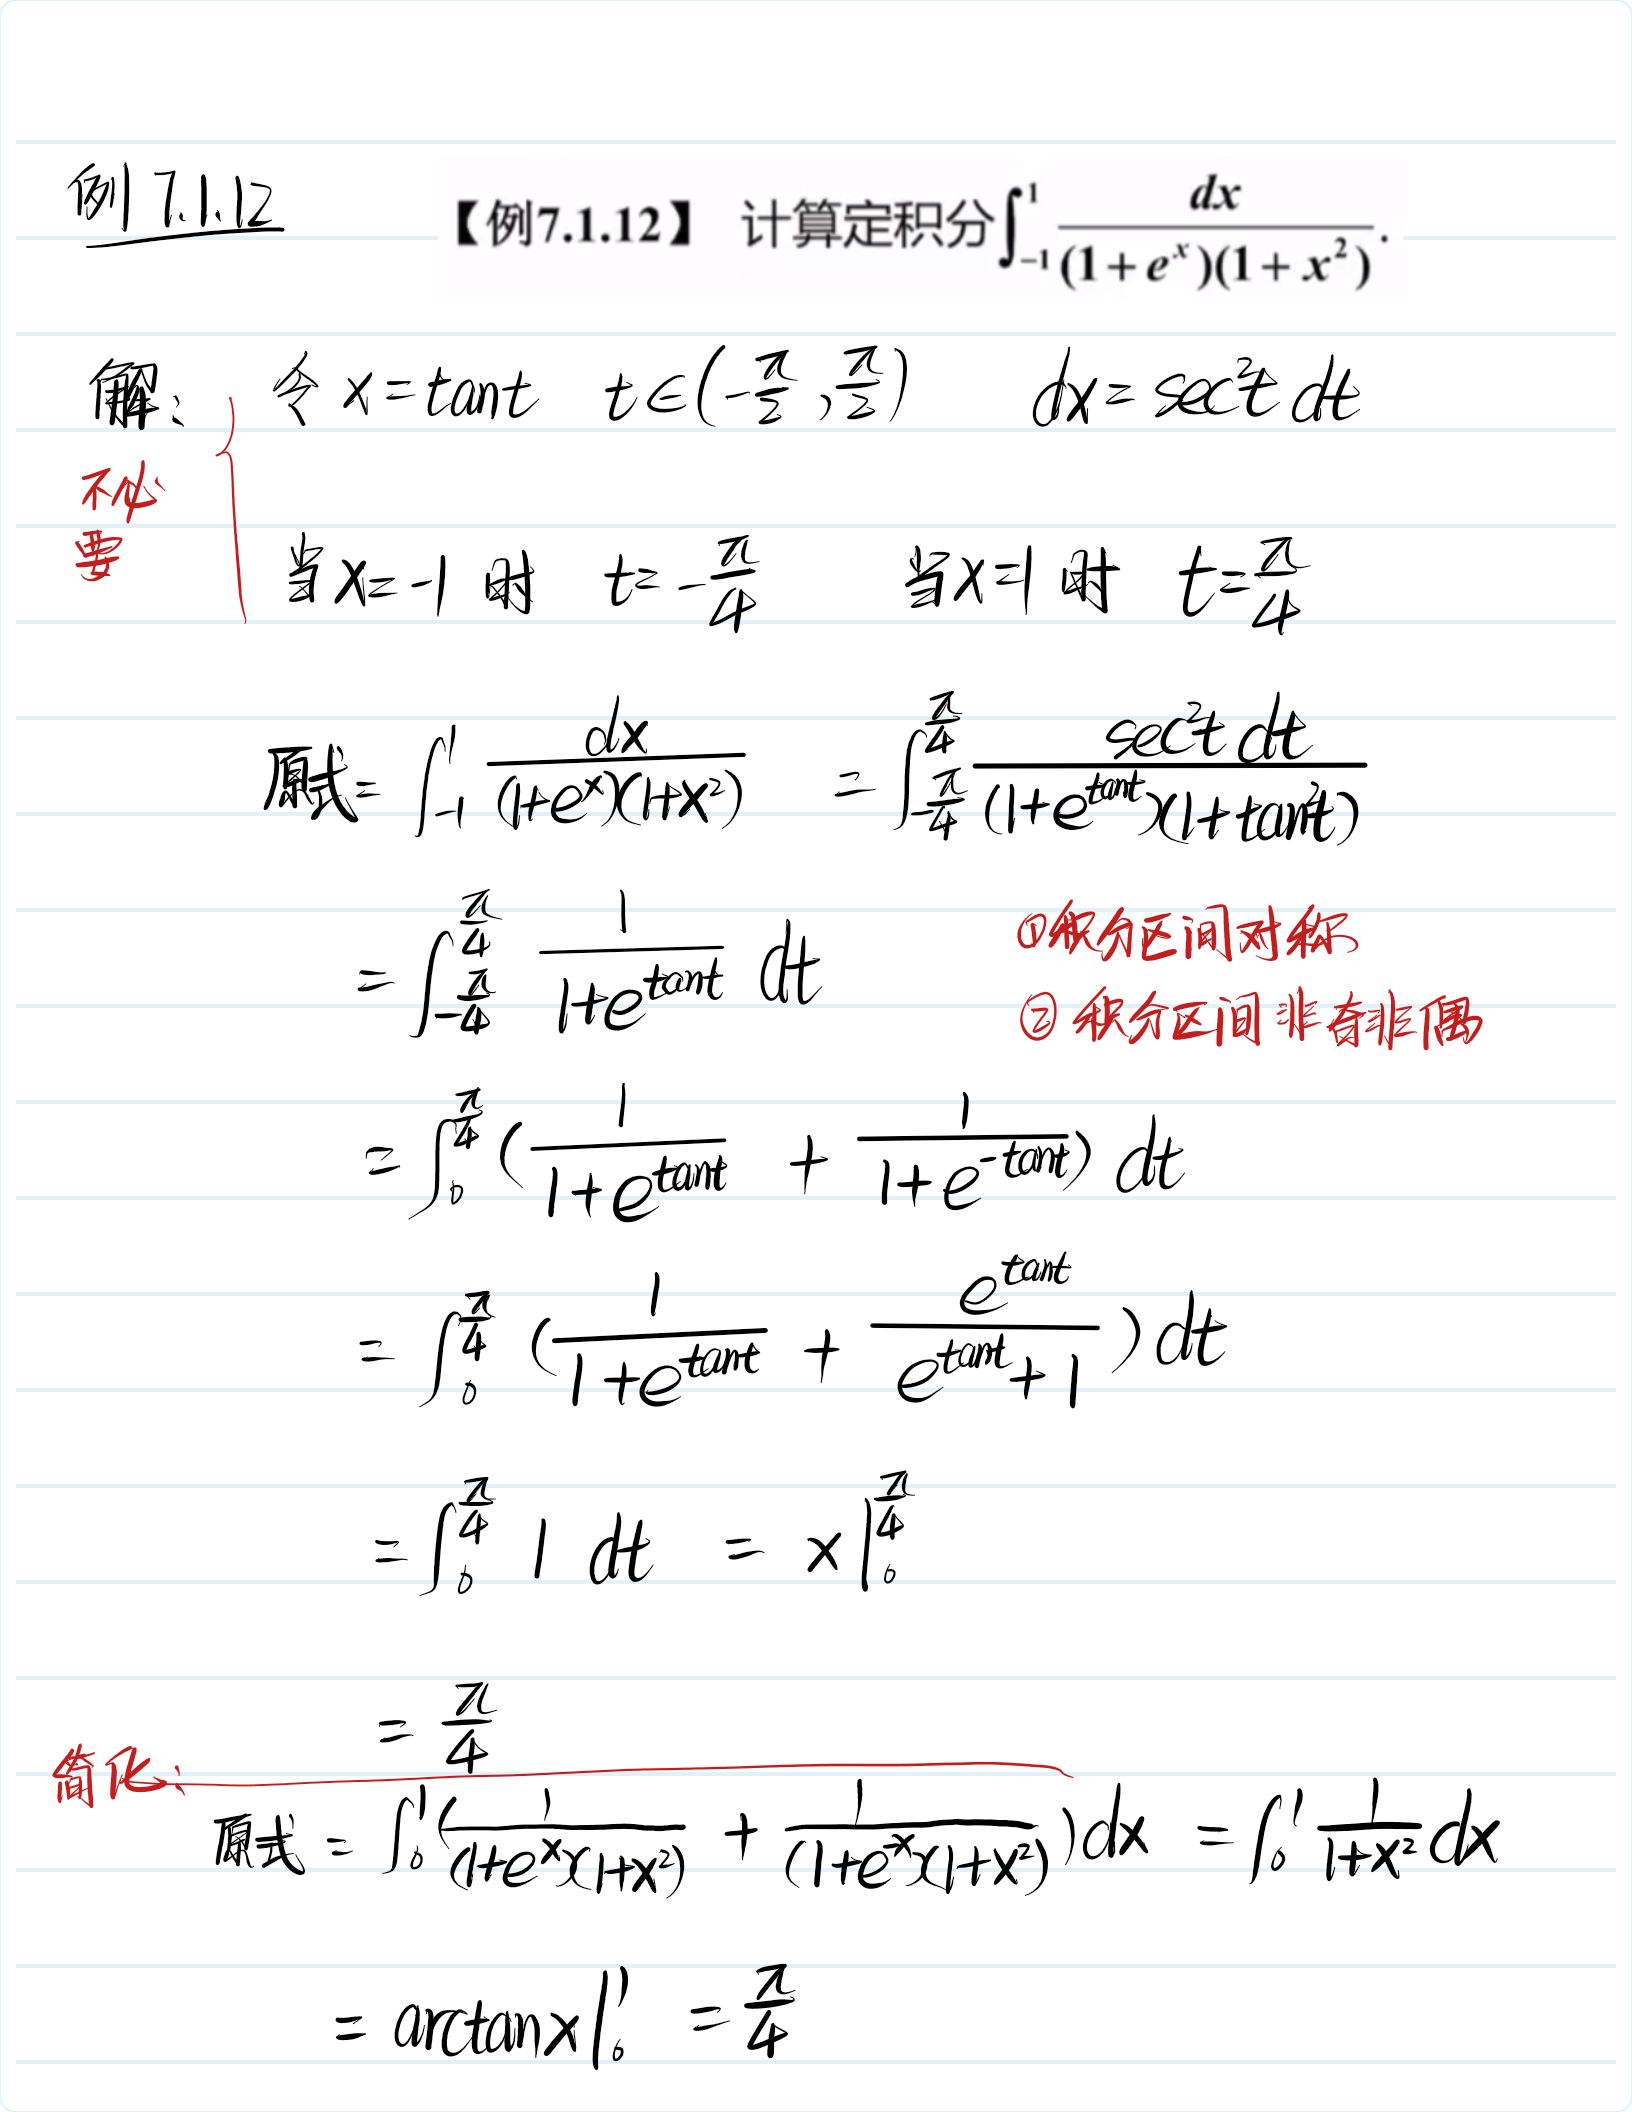 例 7.1.12
【例7.1.12】 计算定积分∫_{-1}^{1} dx/((1+e^x)(1+x²)).
解: 令 x=tant t∈(-π/2,π/2) dx=sec²t dt
不必
要
当x=-1 时 t=-π/4 当x=1 时 t=π/4
原式=∫_{-1}^{1} dx/((1+e^x)(1+x²)) =∫_{-π/4}^{π/4} sec²t dt/((1+e^{tant})(1+tan²t))
=∫_{-π/4}^{π/4} 1/(1+e^{tant}) dt
①积分区间对称
②积分区间非奇非偶
=∫_0^{π/4} (1/(1+e^{tant}) + 1/(1+e^{-tant})) dt
=∫_0^{π/4} (1/(1+e^{tant}) + e^{tant}/(e^{tant}+1)) dt
=∫_0^{π/4} 1 dt = x|_0^{π/4}
=π/4
简化:
原式=∫_0^1 (1/((1+e^x)(1+x²)) + 1/((1+e^{-x})(1+x²)))dx =∫_0^1 1/(1+x²) dx
=arctanx|_0^1 =π/4